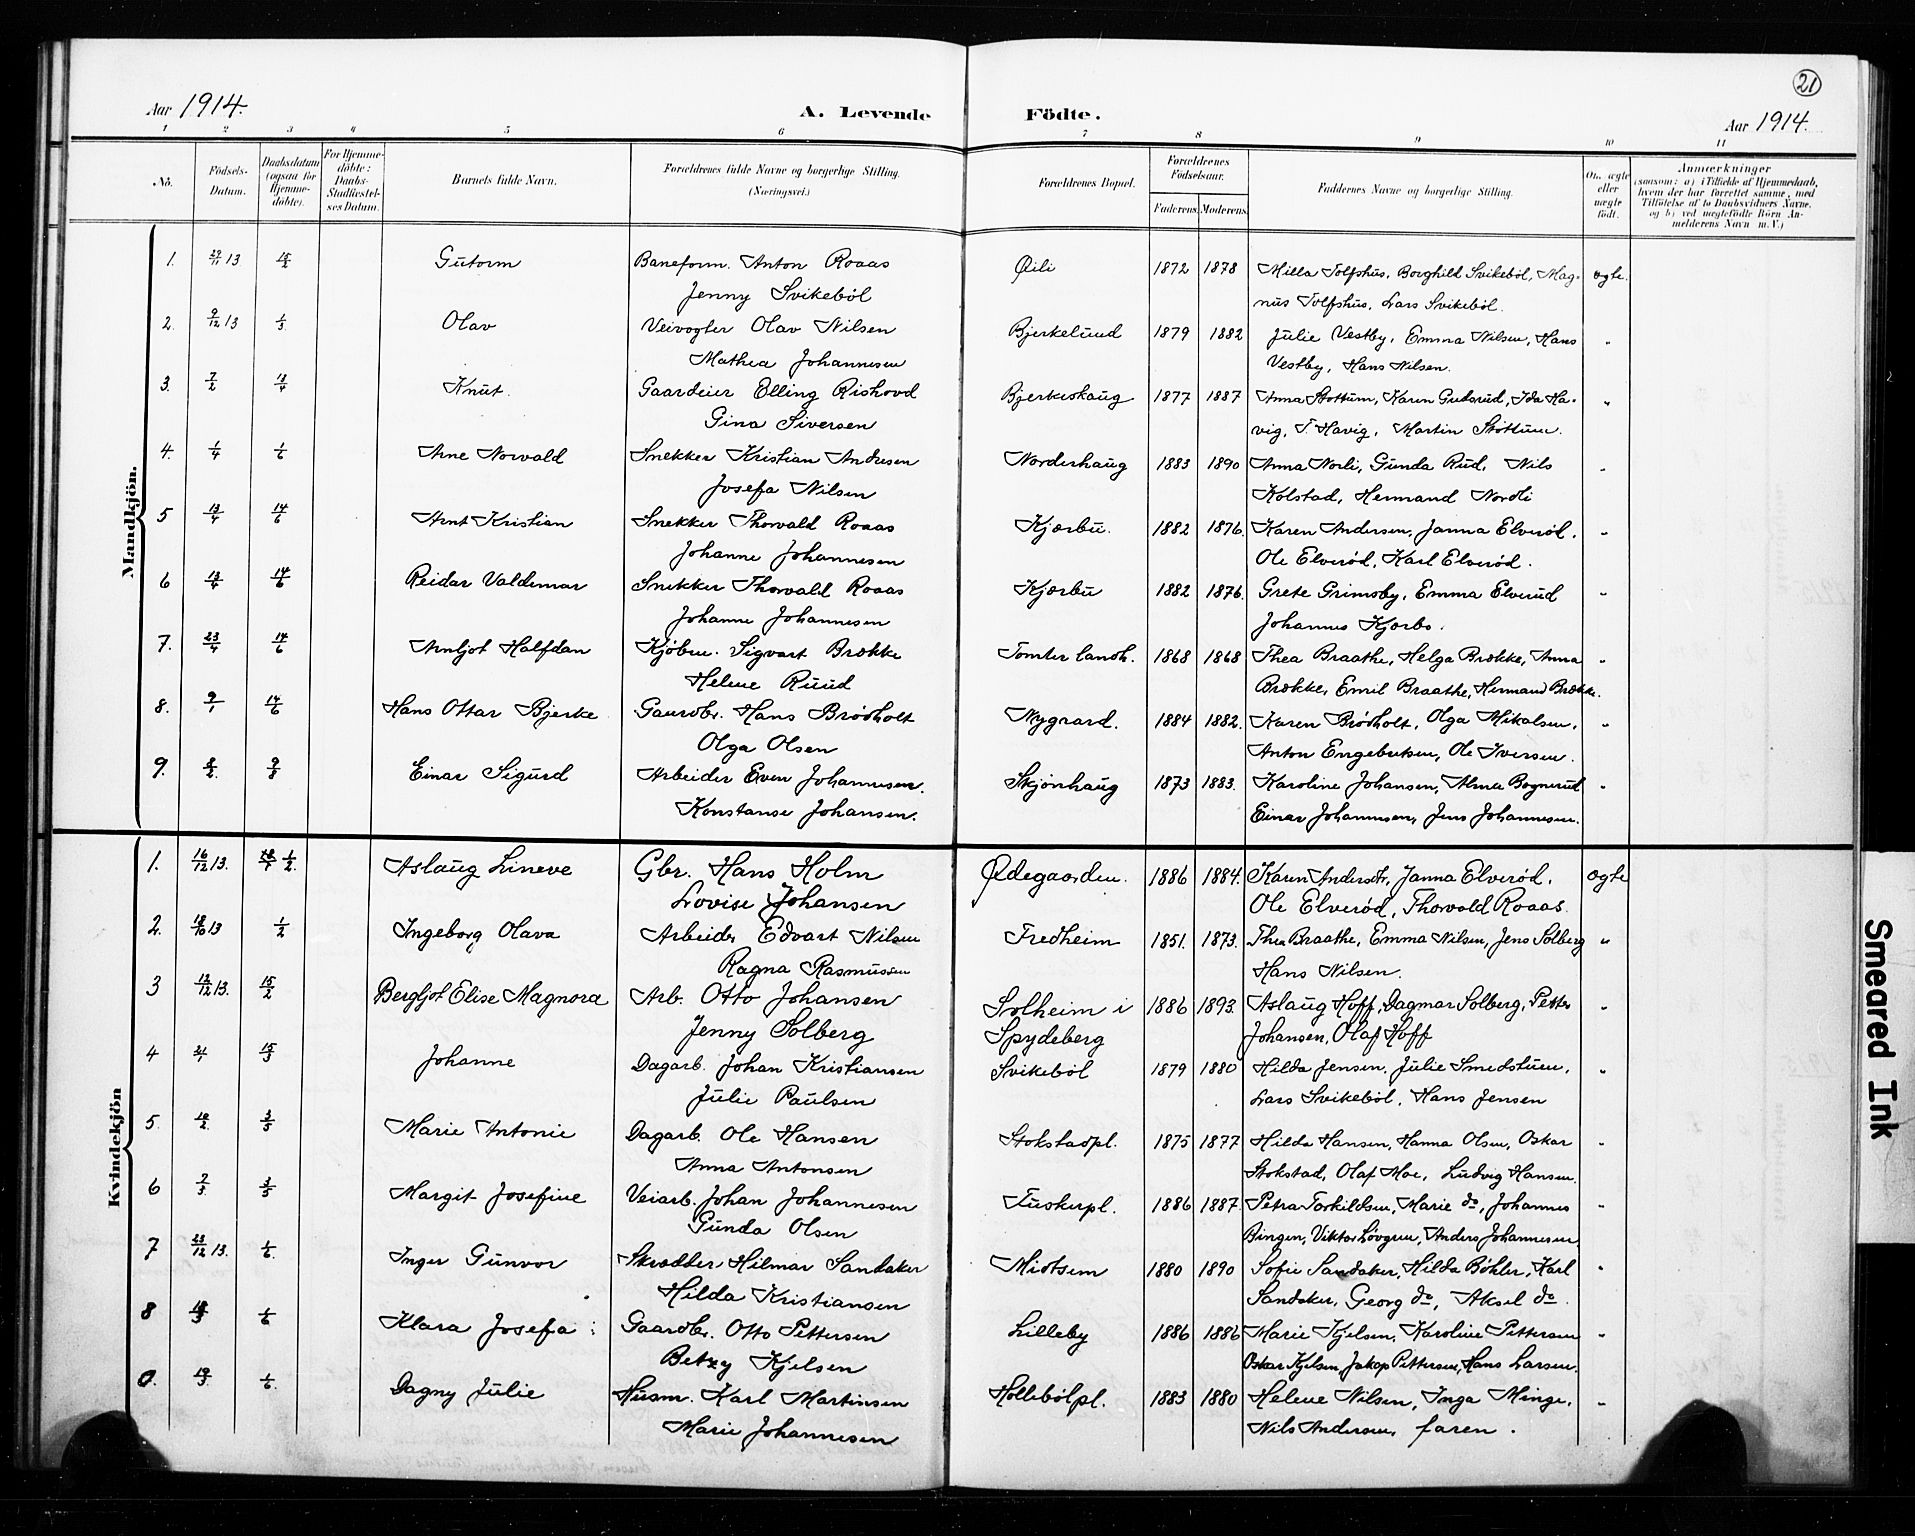 21
Aar 1914.
A. Levende Födte.
Aar 1914.
1 2 3 4 5 6 7 8 9 10 11
No.
Födsels-Datum.
Daabsdatum (ogsaa for Hjemme-döbte).
For Hjemme-döbte: Daabs-Stadfæstel-ses Datum.
Barnets fulde Navn.
Forældrenes fulde Navne og borgerlige Stilling. (Næringsvei.)
Forældrenes Bopæl.
Forældrenes Födselsaar.
Faderens Moderens
Faddernes Navne og borgerlige Stilling.
Om ægte eller uægte födt.
Anmærkninger
(saasom: a) i Tilfælde af Hjemmedaab, hvem der har forrettet samme, med Tilföielse af to Daabsvidners Navne, og b) ved uægtefödte Börn An-melderens Navn m.V.)
Mandkjön.
1. 29/11 13 15/2 Gutorm Baneform. Anton Roaas Øili 1872 1878 Milla Tolfshus, Borghild Svikeböl, Mag- ægte.
Jenny Svikeböl nus Tolfshus, Lars Svikeböl.
2. 9/12 13 1/3 Olav Veivogter Olav Nilsen Bjerkelund 1879 1882 Julie Vestby, Emma Nilsen, Hans "
Mathea Johannesen Vestby, Hans Nilsen.
3. 7/2 13/4 Knut. Gaardeier Elling Rishovd Bjerkeskaug 1877 1887 Anna Stottum, Karen Gudsrud, Ida Ha- "
Gina Siversen vig, T. Havig, Martin Stottum.
4. 1/4 1/6 Arne Norvald Snekker Kristian Andresen Norderhaug 1883 1890 Anna Norli, Gunda Rud, Nils "
Josefa Nilsen Kolstad, Hermand Nordli
5 13/4 14/6 Arnt Kristian Snekker Thorvald Roaas Kjærbu. 1882 1876. Karen Andersen, Janna Elveröd. "
Johanne Johannesen Ole Elveröd, Karl Elveröd.
6 13/4 14/6 Reidar Valdemar Snekker Thorvald Roaas Kjærbu 1882 1876. Grete Grimsby, Emma Elverud "
Johanne Johannesen Johannes Kjærbo.
7. 23/4 14/6 Arnljot Halfdan Kjöbm. Sigvart Brække Tomter landh. 1868 1868 Thea Braathe, Helga Brække, Anna "
Helene Ruud Brække, Emil Braathe, Hermand Brække.
8. 9/1 14/6 Hans Ottar Bjerke Gaardbr. Hans Brödholt Nygaard. 1884 1882. Karen Brödholt, Olga Mikalsen, "
Olga Olsen Anton Engebretsen, Ole Iversen.
9. 8/2 9/8 Einar Sigurd Arbeider Even Johannesen. Skjönhaug 1873 1883. Karoline Johansen, Alma Bognerud "
Konstanse Johansen. Einar Johannesen, Jens Johannesen.
Kvindekjön
1. 16/12 13. 1/2 Aslaug Lineve Gbr. Hans Holm Ødegaarden. 1886 1884. Karen Andersdtr, Janna Elveröd, ægte
Lovise Johansen Ole Elveröd, Thorvald Roaas.
2. 18/10 13 1/2 Ingeborg Olava Arbeider Edvart Nilsen Fredheim 1851. 1873. Thea Braathe, Emma Nilsen, Jens Solberg "
Ragna Rasmussen Hans Nilsen.
3 12/12 13. 15/2 Bergljot Elise Magnora Arb. Otto Johansen Solheim i 1886 1893. Aslaug Hoff, Dagmar Solberg, Petter "
Jenny Solberg Spydeberg Johansen, Olaf Hoff
4 15/3 Johanne Dagarb. Johan Kristiansen Svikeböl 1879 1880 Hilda Jensen, Julie Smedstuen, "
Julie Paulsen Lars Svikeböl, Hans Jensen
5. 3/5 Marie Antonie Dagarb. Ole Hansen Stokstadpl. 1875 1877 Hilda Hansen, Hanna Olsen, Oskar "
Anna Antonsen Stokstad, Olaf Moe, Ludvig Hansen.
6 2/3 3/5 Margit Josefine Veiarb. Johan Johannesen Tuskerpl. 1886 1887. Petra Torkildsen, Marie do, Johannes "
Gunda Olsen Bingen, Viktor Lövgren, Anders Johannesen.
7 23/12 13. 1/6. Inger Gunvor Skrædder Hilmar Sandaker Miotsem 1880 1890 Sofie Sandaker, Hilda Böhler, Karl "
Hilda Kristiansen Sandaker, Georg do, Aksel do.
8 1/6 Klara Josefa Gaardbr. Otto Pettersen Lilleby 1886 1886 Marie Kjelsen, Karoline Pettersen "
Betzy Kjelsen Oskar Kjelsen, Jakop Pettersen, Hans Larsen.
19/3. 1/6. Dagny Julie Husm. Karl Martinsen Hollebölpl. 1883 1880 Helene Nilsen, Inga Minge, "
Marie Johannesen Nils Andersen, faren.
Smeared Ink